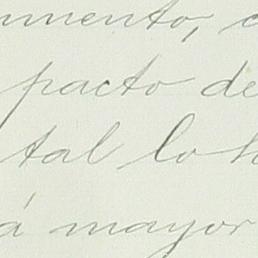 mento, c
pacto de
tal lo h
á mayor